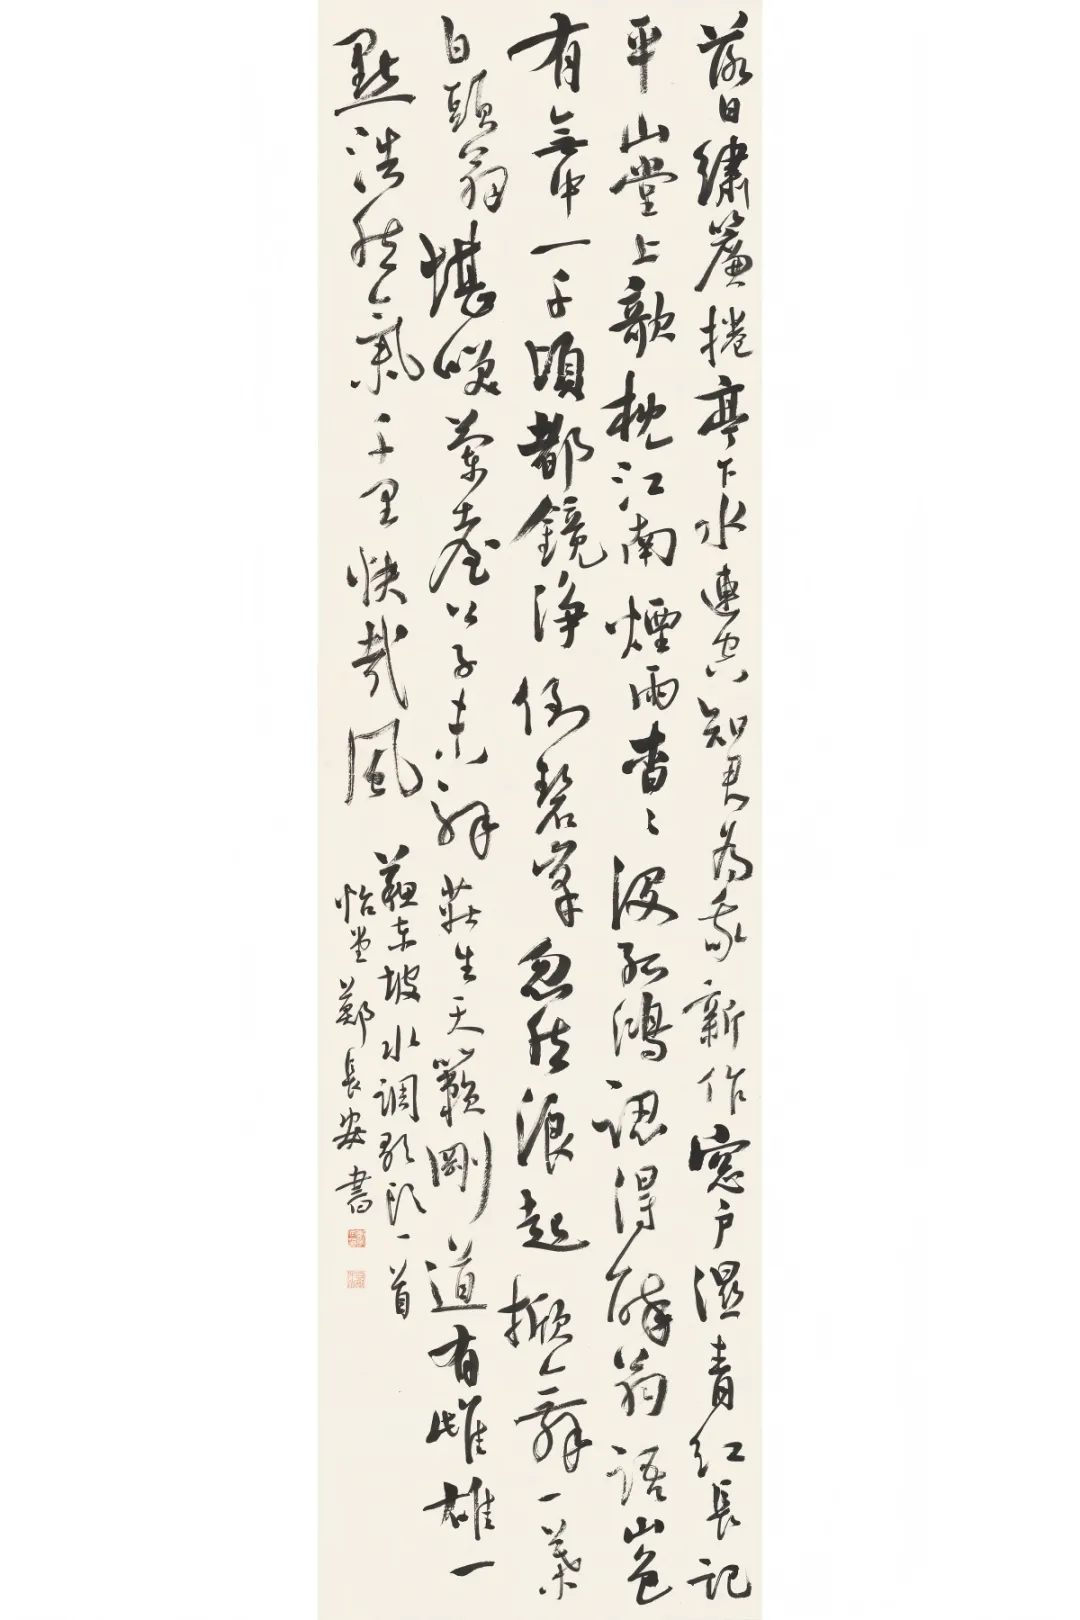 落日繡簾捲亭下水連空知君為我新作窓戶濕青紅長記
平山堂上欹枕江南煙雨杳〻沒孤鴻認得醉翁語山色
有無中一千頃都鏡淨倒碧峯忽然浪起掀舞一葉
白頭翁堪笑蘭臺公子未解莊生天籟剛道有雌雄一
點浩然氣千里快哉風
蘇東坡水調歌頭一首
怡堂鄭長安書